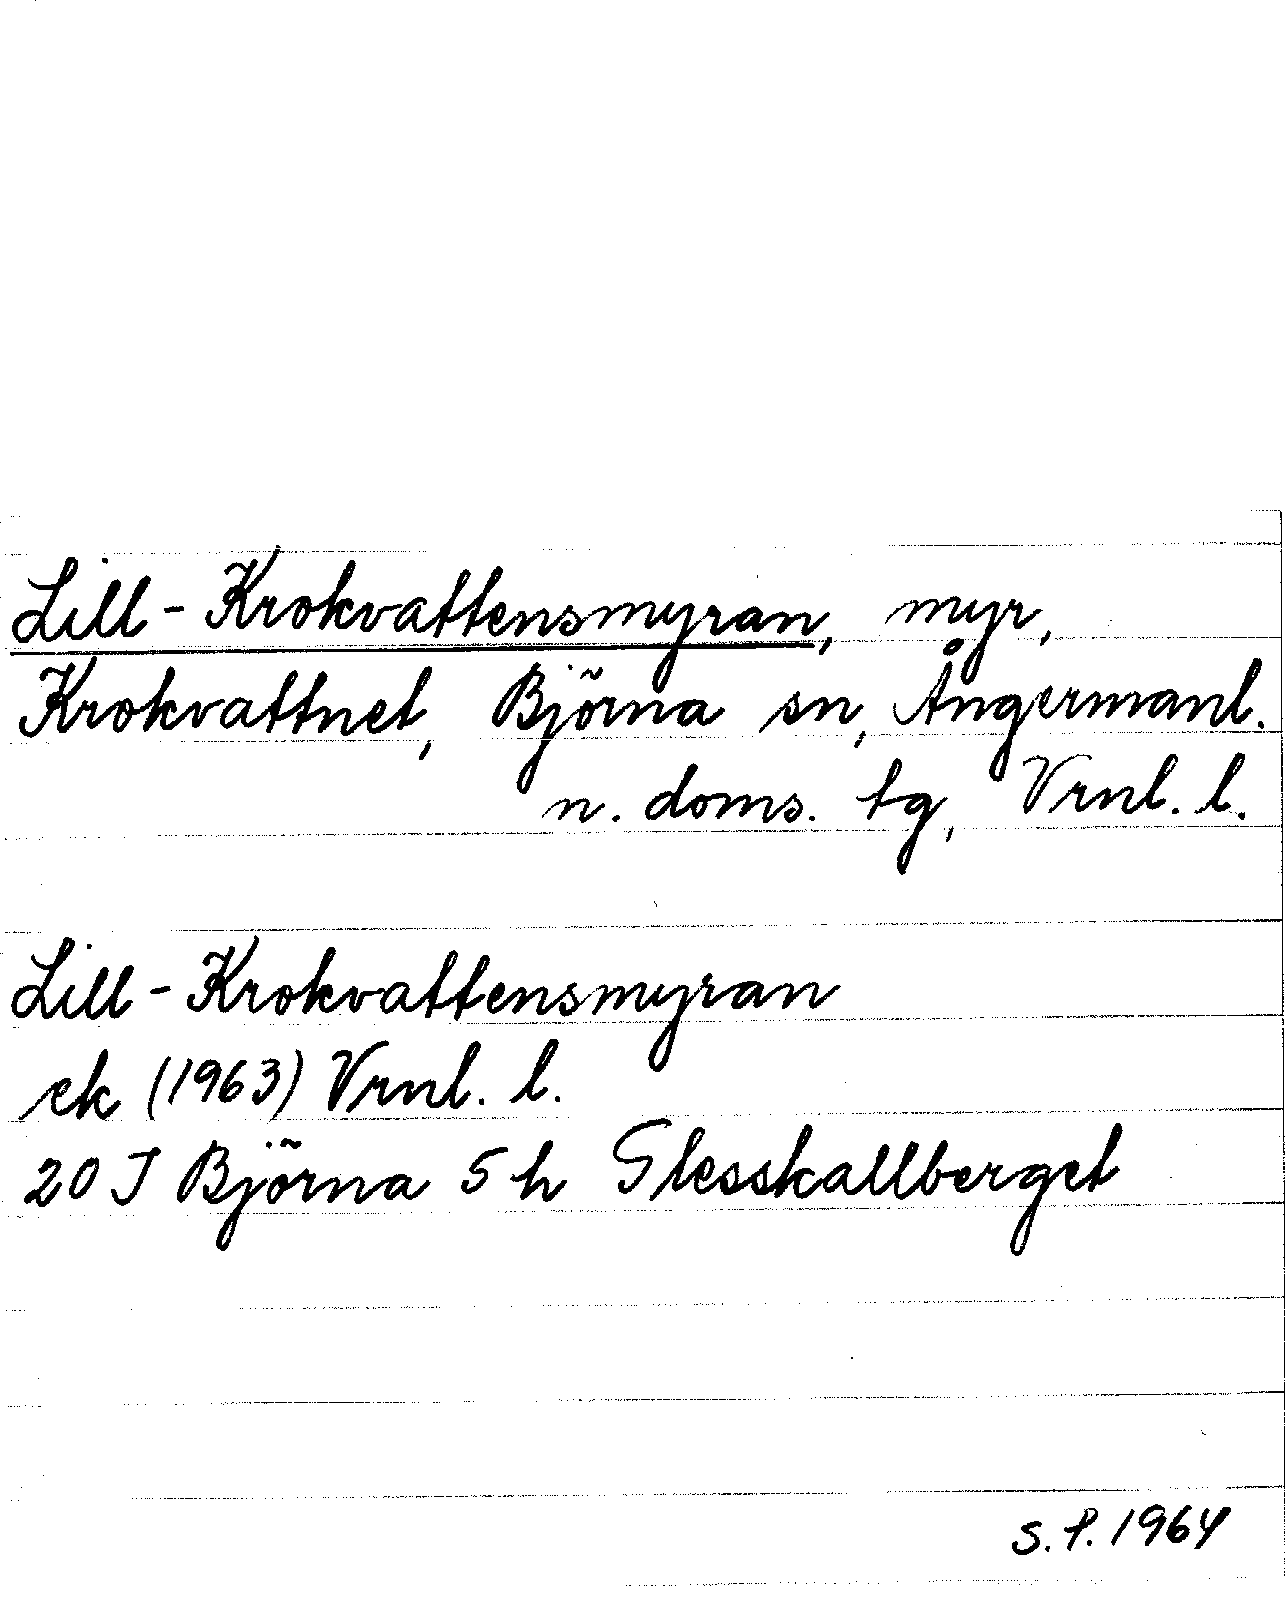 Lill-Krokvattensmyran, myr,
Krokvattnet, Björna sn, Ångermanl.
n. doms. tg, Vrnl. l.
Lill-Krokvattensmyran
ek (1963) Vrnl. l.
20 J Björna 5 h Glesskallberget
S. P. 1964